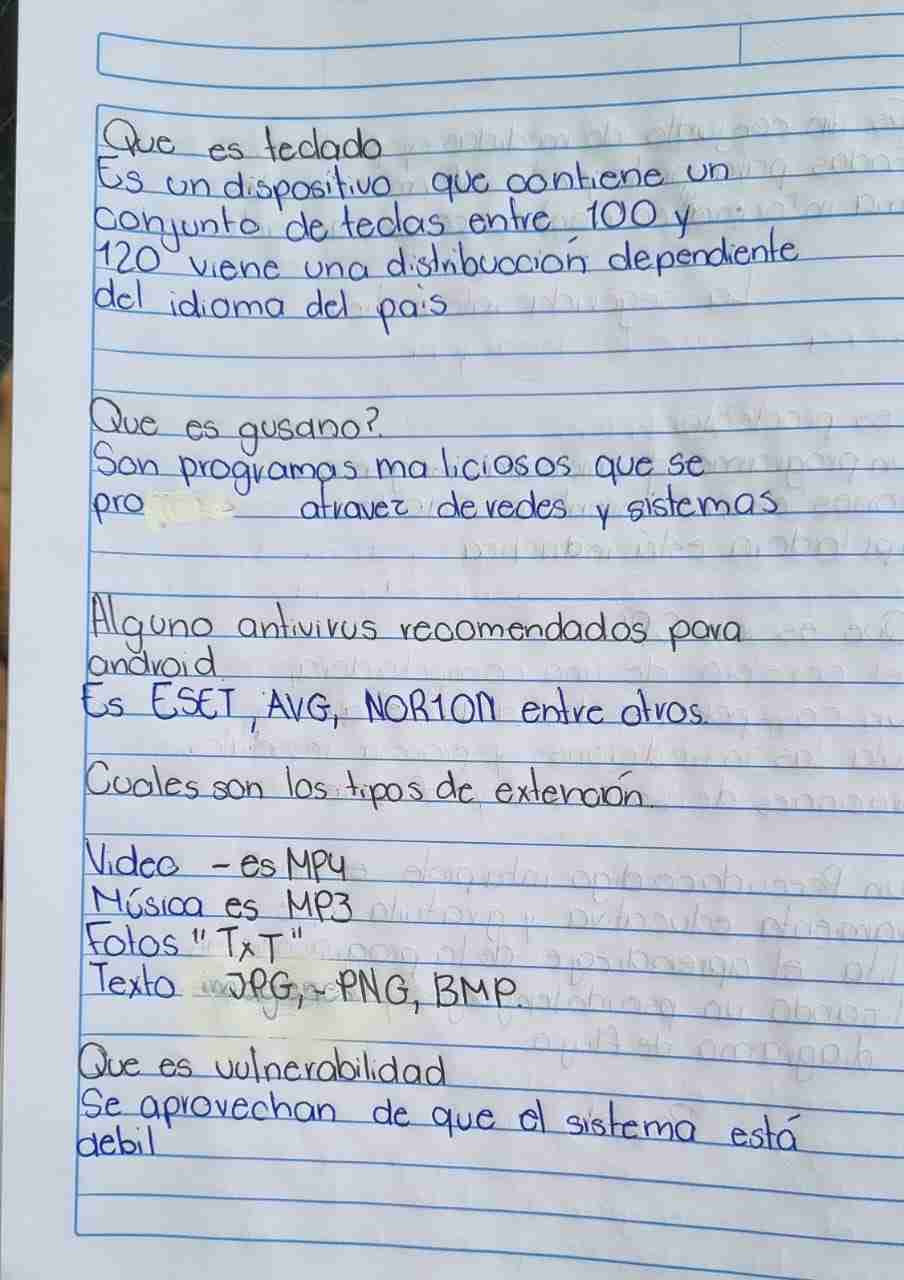 Que es teclado
Es un dispositivo que contiene un
conjunto de teclas entre 100 y
120 viene una distribucción dependiente
del idioma del pais
Que es gusano?
Son programas maliciosos que se
pro atravez de redes y sistemas
Alguno antivirus recomendados para
android
Es ESET, AVG, NOR1ON entre otros.
Cuales son los tipos de extención
Video - es MP4
Música es MP3
Fotos "TxT"
Texto JPG, - PNG, BMP.
Que es vulnerabilidad
Se aprovechan de que el sistema está
debil